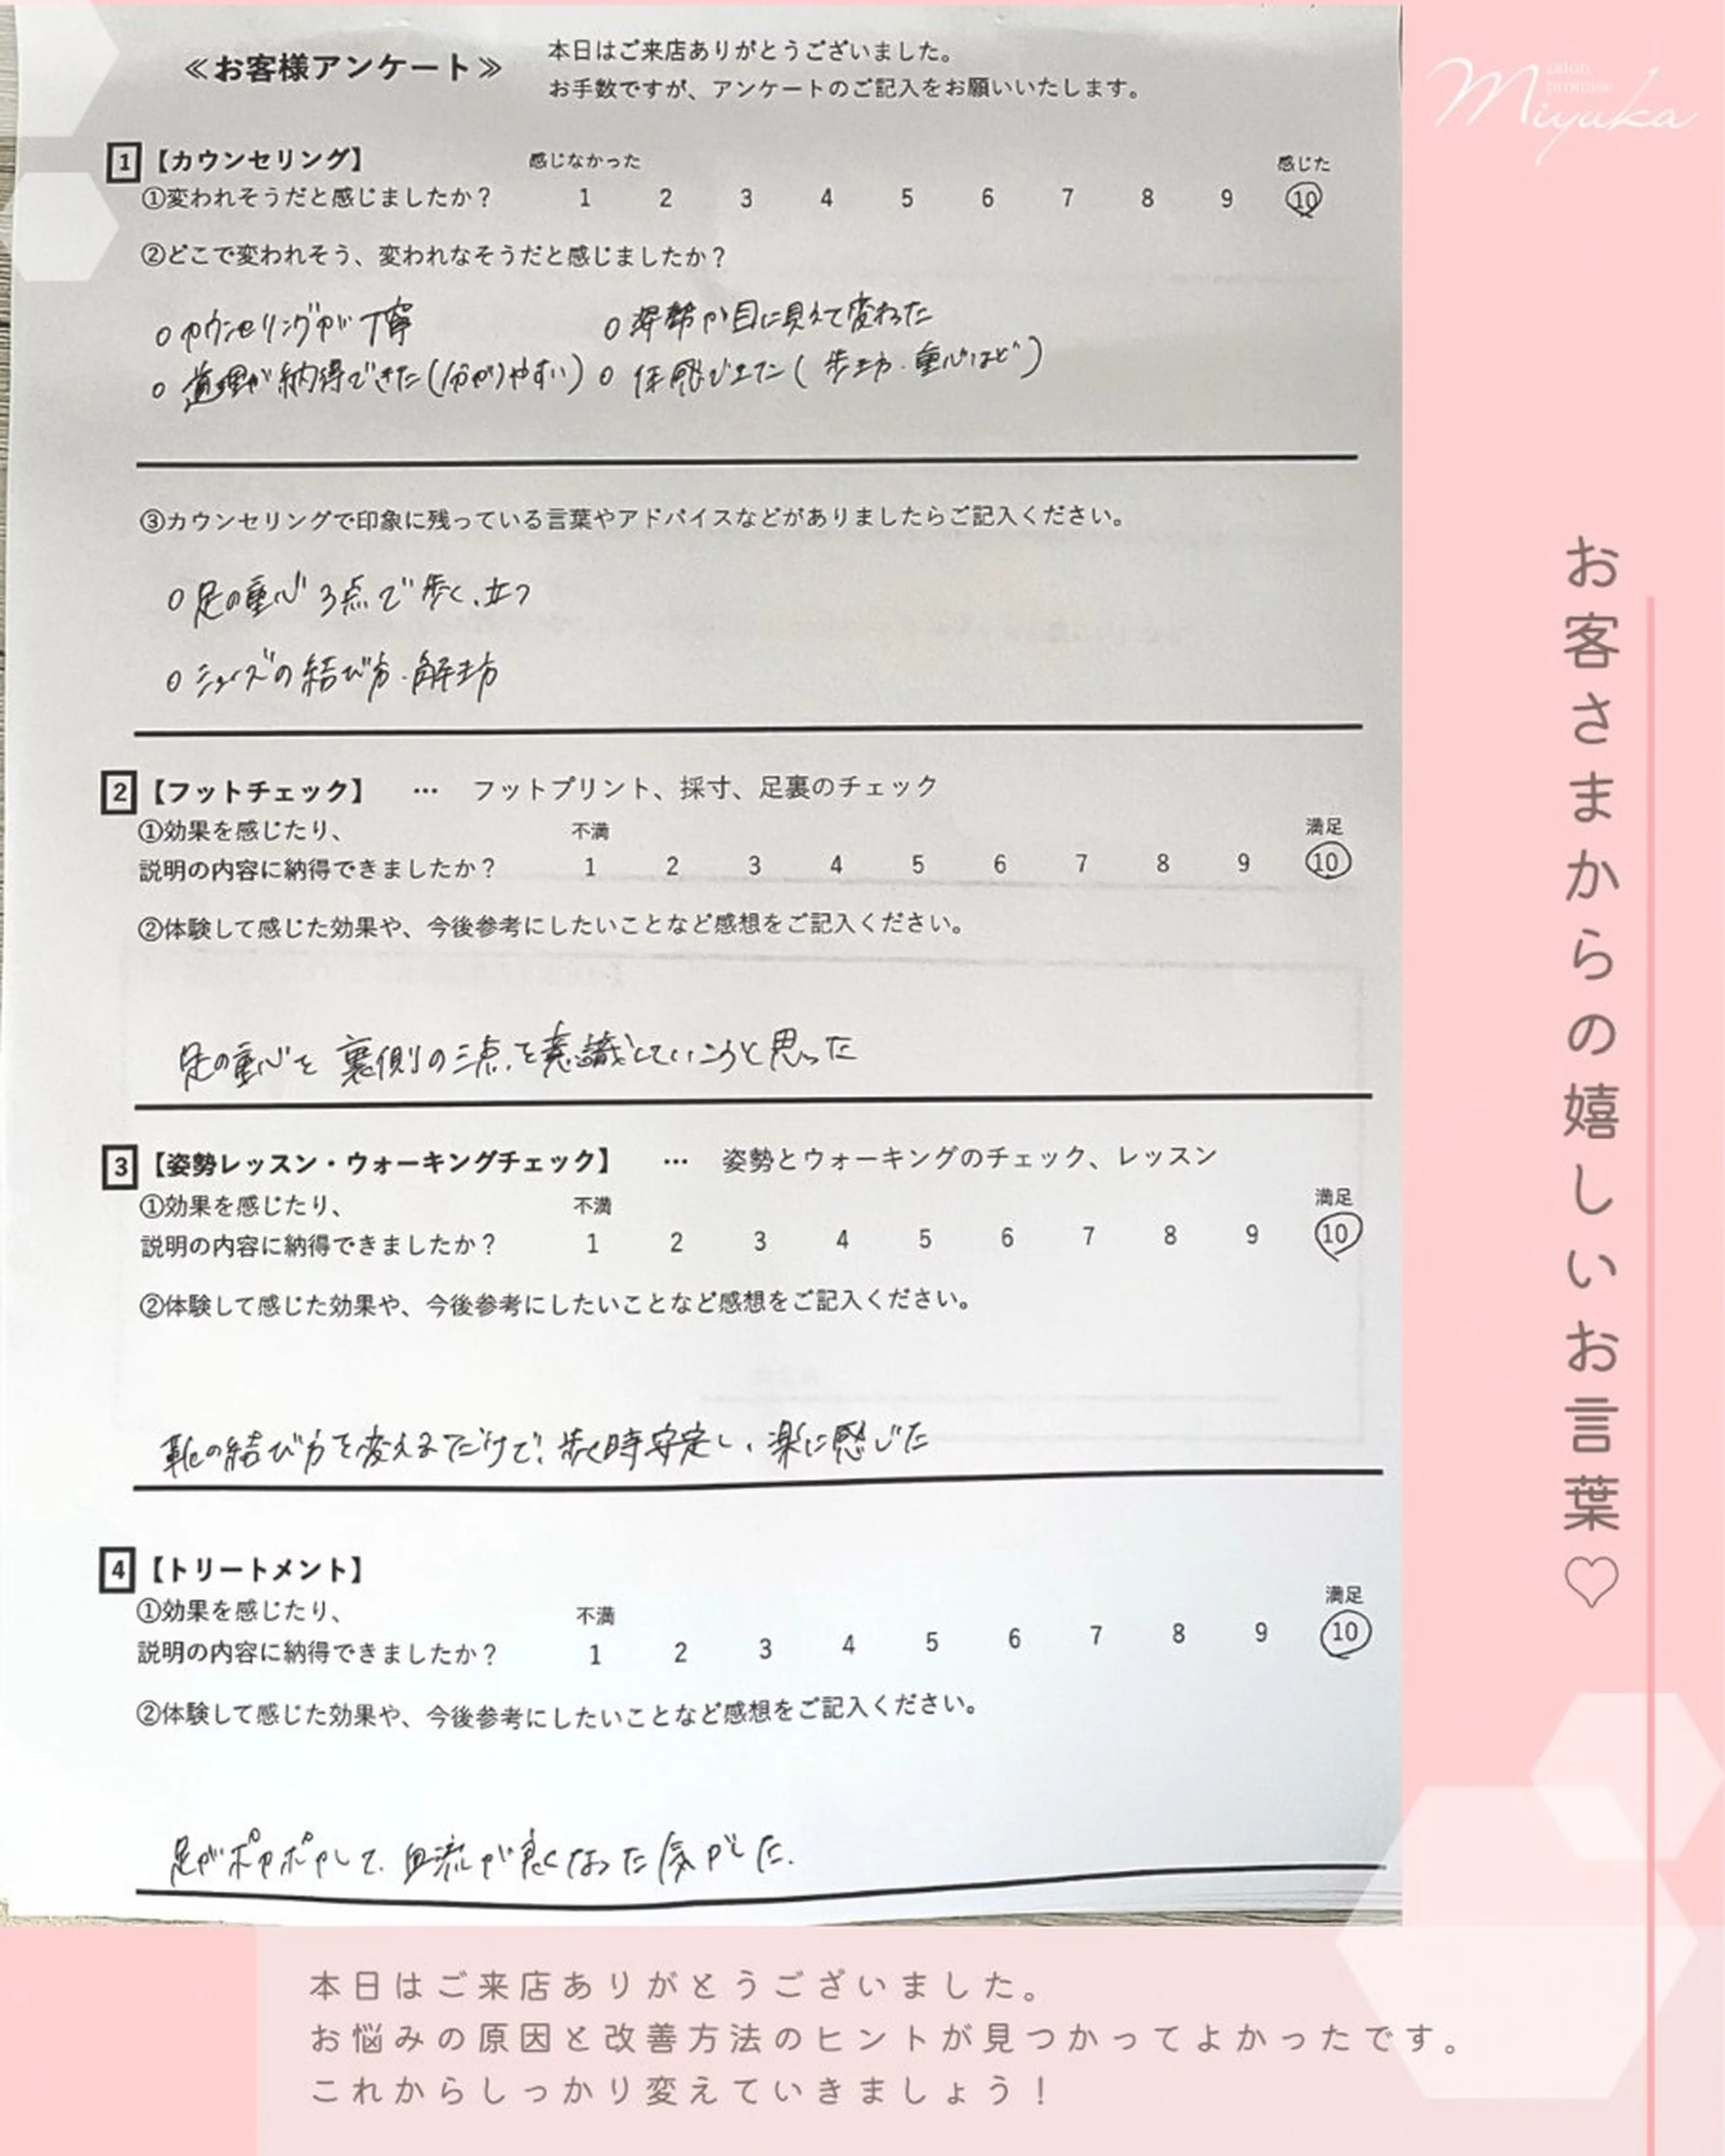 ≪お客様アンケート≫
本日はご来店ありがとうございました。
お手数ですが、アンケートのご記入をお願いいたします。
1【カウンセリング】
感じなかった 感じた
①変われそうだと感じましたか？ 1 2 3 4 5 6 7 8 9 10
②どこで変われそう、変われなそうだと感じましたか？
○カウンセリングが丁寧 ○姿勢が目に見えて変わった
○道理が納得できた(分かりやすい) ○体感できた(歩き方・重心など)
③カウンセリングで印象に残っている言葉やアドバイスなどがありましたらご記入ください。
○足の重心3点で歩く、立つ
○シューズの結び方・解き方
2【フットチェック】 … フットプリント、採寸、足裏のチェック
①効果を感じたり、 不満 満足
説明の内容に納得できましたか？ 1 2 3 4 5 6 7 8 9 10
②体験して感じた効果や、今後参考にしたいことなど感想をご記入ください。
足の重心を裏側の三点を意識していこうと思った
3【姿勢レッスン・ウォーキングチェック】 … 姿勢とウォーキングのチェック、レッスン
①効果を感じたり、 不満 満足
説明の内容に納得できましたか？ 1 2 3 4 5 6 7 8 9 10
②体験して感じた効果や、今後参考にしたいことなど感想をご記入ください。
靴の結び方を変えるだけで、歩く時安定し、楽に感じた
4【トリートメント】
①効果を感じたり、 不満 満足
説明の内容に納得できましたか？ 1 2 3 4 5 6 7 8 9 10
②体験して感じた効果や、今後参考にしたいことなど感想をご記入ください。
足がポカポカして、血流が良くなった気がした.
salon
promise
Miyuka
お客さまからの嬉しいお言葉♡
本日はご来店ありがとうございました。
お悩みの原因と改善方法のヒントが見つかってよかったです。
これからしっかり変えていきましょう！